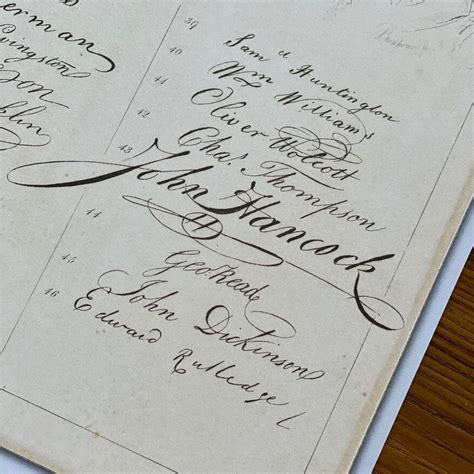 erman
ivingston
on
klin
39
40 Sam el Huntington
41 Wm Williams
42 Oliver Wolcott
43 Chas. Thompson
John Hancock
44 Geo Read
45 John Dickinson
46 Edward Rutledge